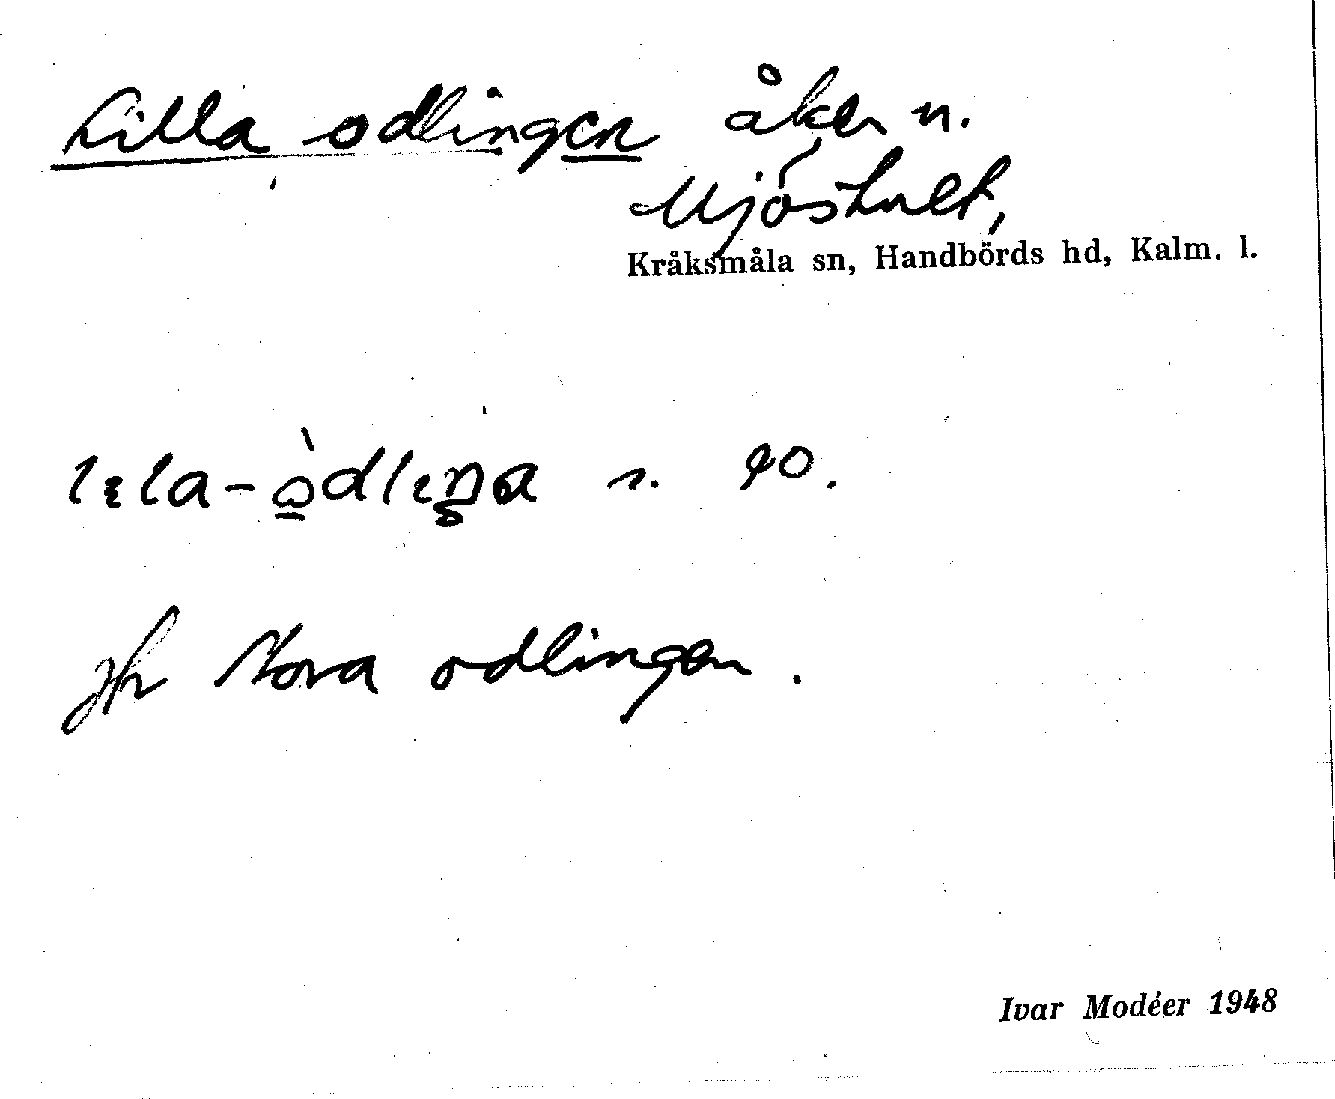 Lilla odlingen åker n.
Mjöshult,
Kråksmåla sn, Handbörds hd, Kalm. l.
lɛla-òdlɛŋa n. 90.
jfr Stora odlingen.
Ivar Modéer 1948